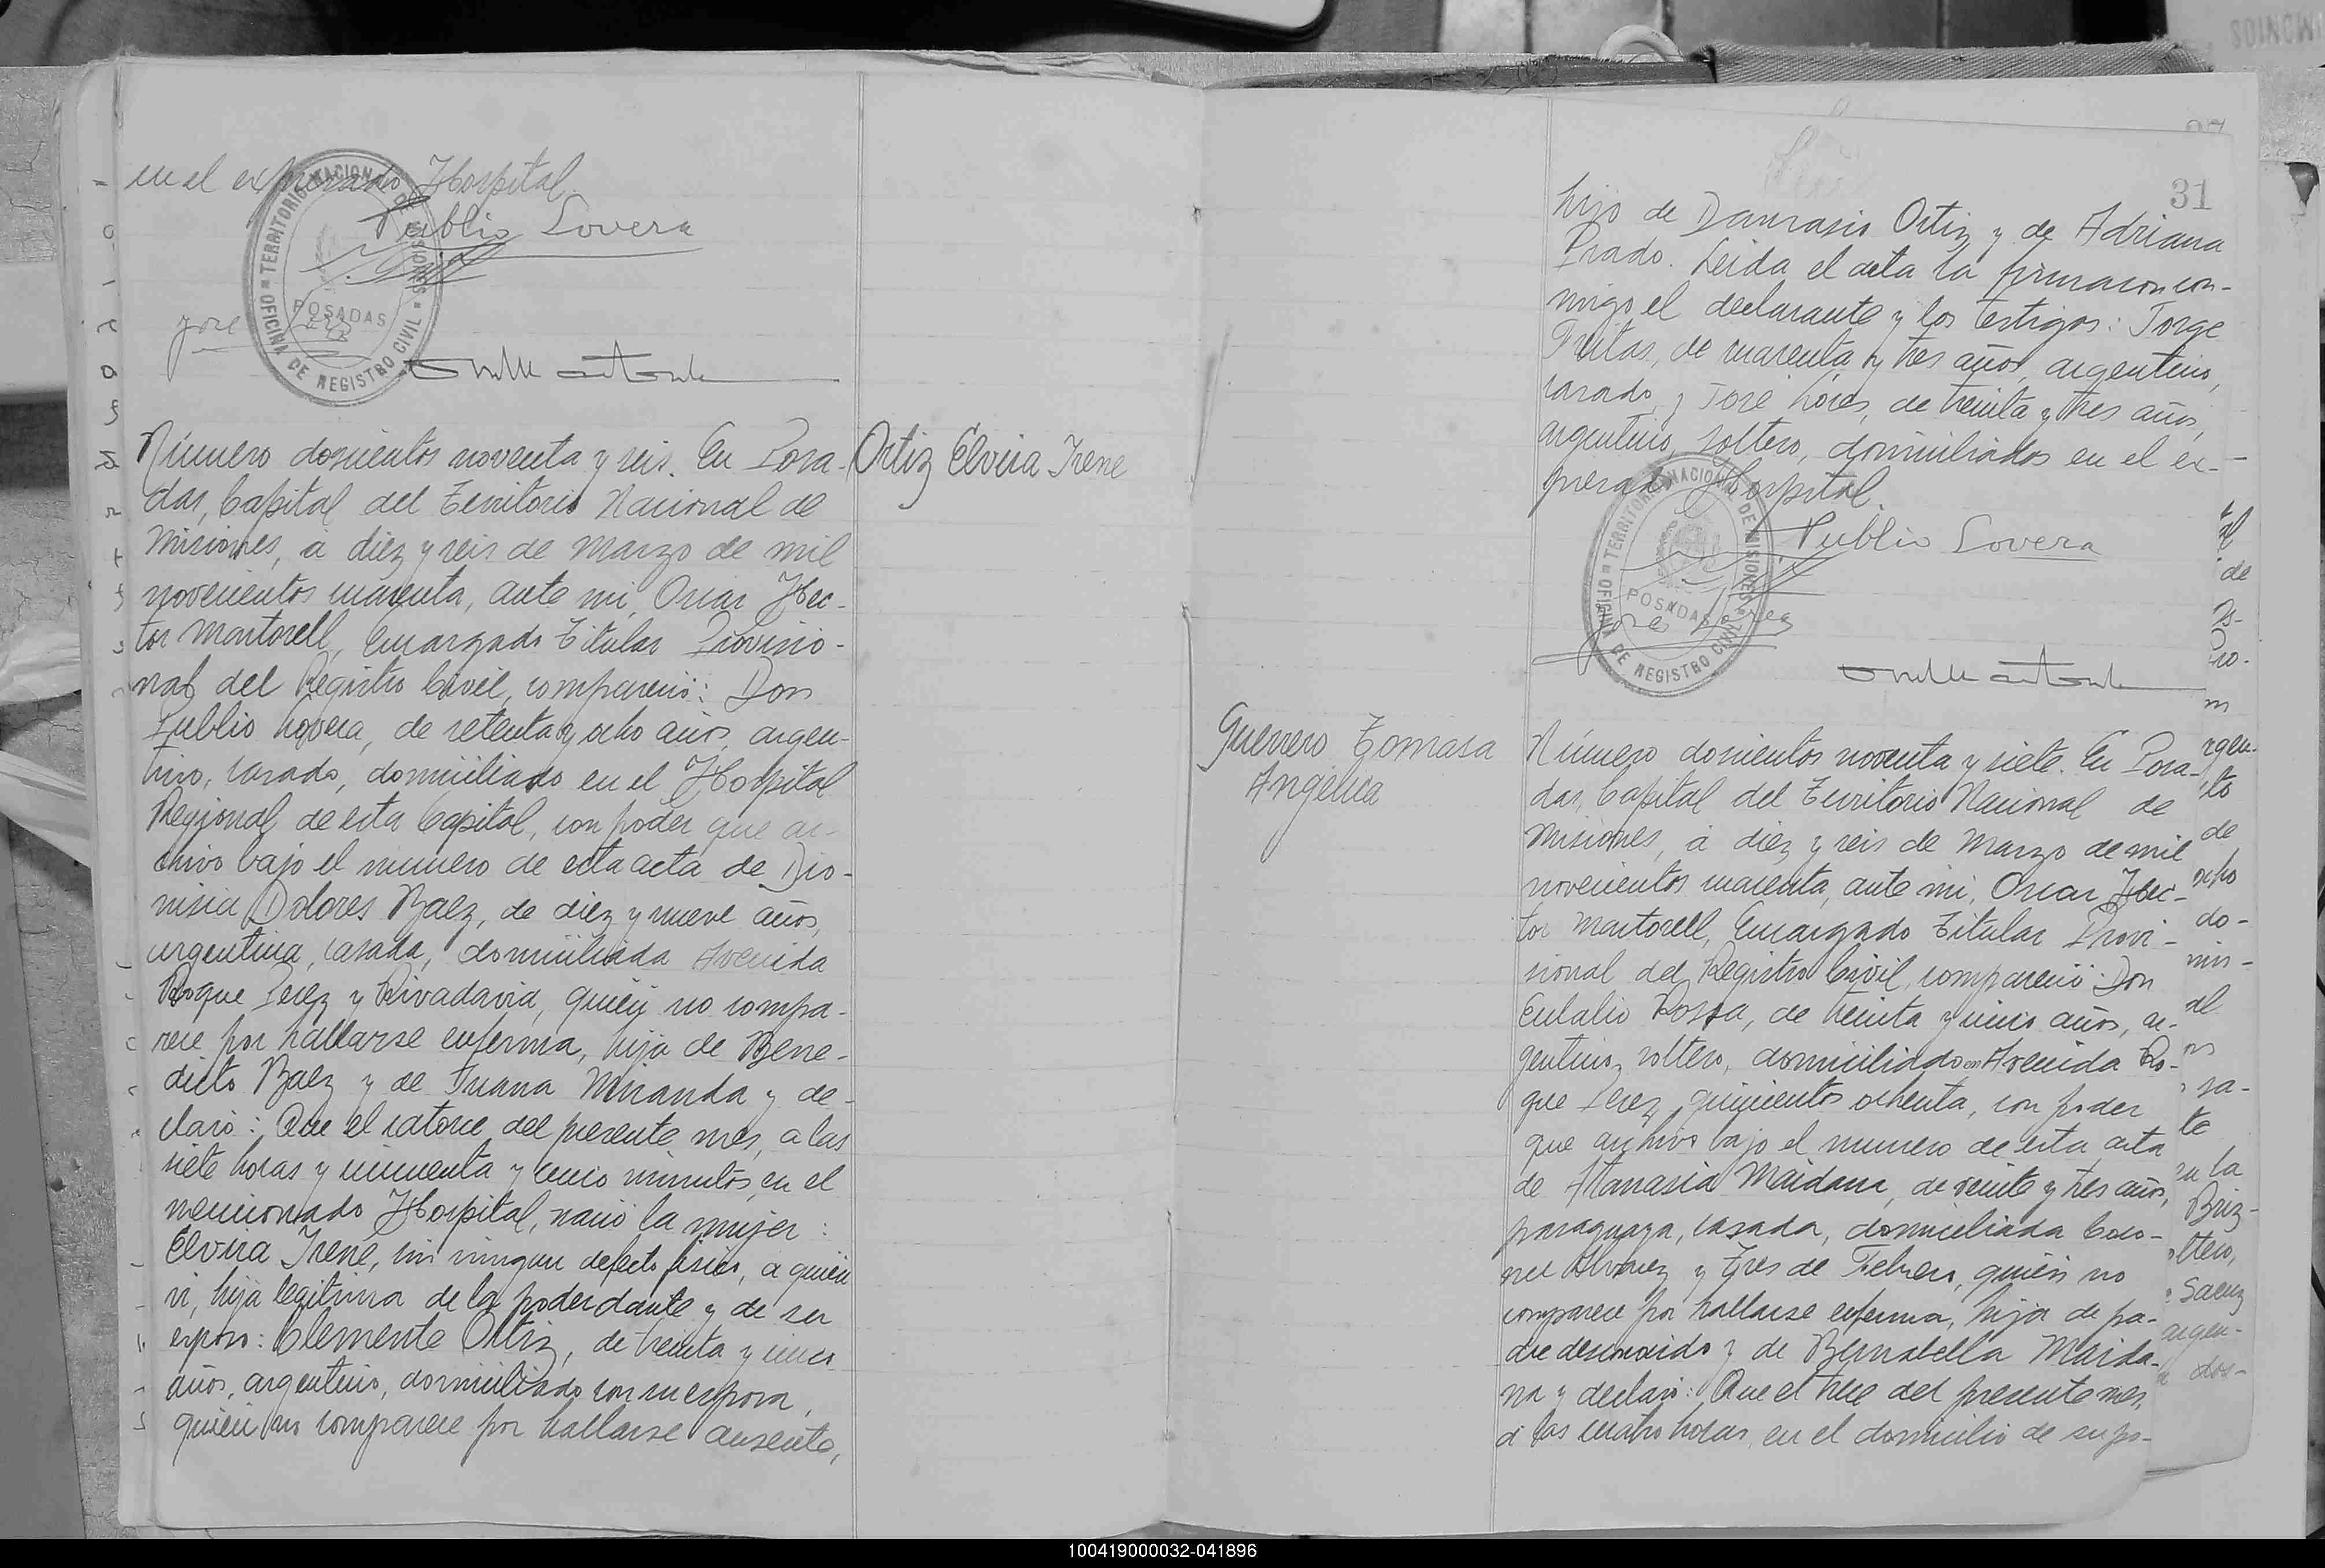 en el expresado Hospital.
Publio Lovera
TERRITORIO NACIONAL DE MISIONES
OFICINA DE REGISTRO CIVIL
POSADAS
José
Número doscientos noventa y seis. En Posa-
das, Capital del Territorio Nacional de
Misiones, a diez y seis de Marzo de mil
novecientos cuarenta, ante mi, Oscar Hec-
tor Martorell, Encargado Titular Proviso-
nal del Registro Civil, compareció: Don
Publio Lovera, de setenta y ocho años, argen-
tino, casado, domiciliado en el Hospital
Regional de esta Capital, con poder que ar-
chivo bajo el numero de esta acta de Dio-
nisia Dolores Baez, de diez y nueve años,
argentina, casada, domiciliada Avenida
Roque Perez y Rivadavia, quien no compa-
rece por hallarse enferma, hija de Bene-
dicto Baez y de Juana Miranda y de-
claró: Que el catorce del presente mes, a las
siete horas y cincuenta y cinco minutos, en el
mencionado Hospital, nació la mujer:
Elvira Irene, sin ningun defecto fisico, a quien
vi, hija legitima de la poderdante y de su
esposo: Clemente Ortiz, de treinta y cinco
años, argentino, domiciliado con su esposa,
quien no comparece por hallarse ausente,
Ortiz Elvira Irene
31
hijo de Damasio Ortiz y de Adriana
Prado. Leida el acta la firmaron con-
migo el declarante y los testigos: Jorge
Fritas, de cuarenta y tres años, argentino,
casado, y José Lores, de treinta y tres años,
argentino, soltero, domiciliados en el ex-
presado Hospital.
Publio Lovera
TERRITORIO NACIONAL DE MISIONES
OFICINA DE REGISTRO CIVIL
POSADAS
José
Guerrero Tomasa
Angélica
Número doscientos noventa y siete. En Posa-
das, Capital del Territorio Nacional de
Misiones, a diez y seis de Marzo de mil
novecientos cuarenta, ante mi, Oscar Hec-
tor Martorell, Encargado Titular Provi-
sional del Registro Civil, compareció: Don
Eulalio Rossa, de treinta y cinco años, ar-
gentino, soltero, domiciliado en Avenida Ro-
que Perez quinientos ochenta, con poder
que archivo bajo el numero de esta acta
de Atanasia Maidana, de veinte y tres años,
paraguaya, casada, domiciliada Coro-
nel Alvarez y Tres de Febrero, quien no
comparece por hallarse enferma, hija de pa-
dre desconocido y de Bernabella Maida-
na y declaró: Que el trece del presente mes,
a las cuatro horas, en el domicilio de su po-
100419000032-041896